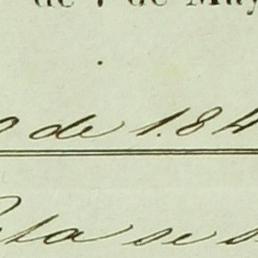 de 7 de May
o de 1.84
sta se s